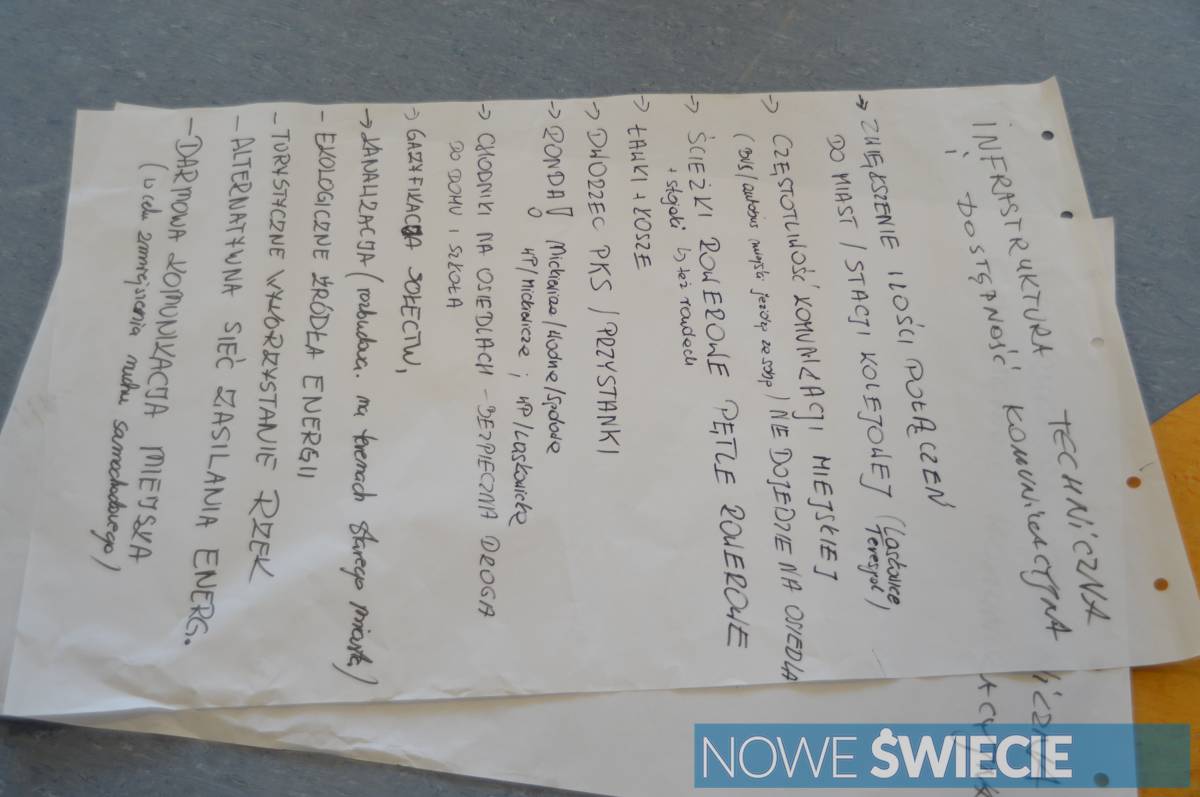 INFRASTRUKTURA TECHNICZNA
i DOSTĘPNOŚĆ KOMUNIKACYJNA
→ ZWIĘKSZENIE ILOŚCI POŁĄCZEŃ
DO MIAST / STACJI KOLEJOWEJ (Laskowice,
Terespol)
→ CZĘSTOTLIWOŚĆ KOMUNIKACJI MIEJSKIEJ
(BUS/autobus miejski jeżdżą ze sobą) NIE DOJEDZIE NA OSIEDLA
→ ŚCIEŻKI ROWEROWE PĘTLE ROWEROWE
+ stojaki ↳ też
→ ŁAWKI + KOSZE
→ DWORZEC PKS / PRZYSTANKI
→ RONDA Mickiewicza/Wodna/Spółdz
WP/Mickiewicza; WP/Laskowicka
→ CHODNIKI NA OSIEDLACH - BEZPIECZNA DROGA
DO DOMU I SZKOŁA
→ GAZYFIKACJA SOŁECTW,
→ KANALIZACJA (rozbudowa na terenach Starego Miasta)
- EKOLOGICZNE ŹRÓDŁA ENERGII
- TURYSTYCZNE WYKORZYSTANIE RZEK
- ALTERNATYWNA SIEĆ ZASILANIA ENERG.
- DARMOWA KOMUNIKACJA MIEJSKA
(w celu zmniejszenia ruchu samochodowego)
NOWE ŚWIECIE